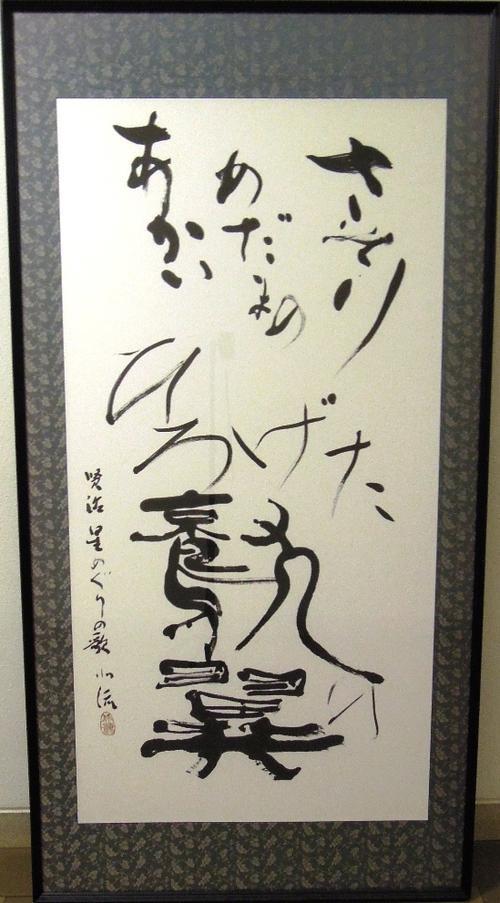 あかい
めだまの
さそり
ひろげた
鷲の
翼
賢治 星めぐりの歌